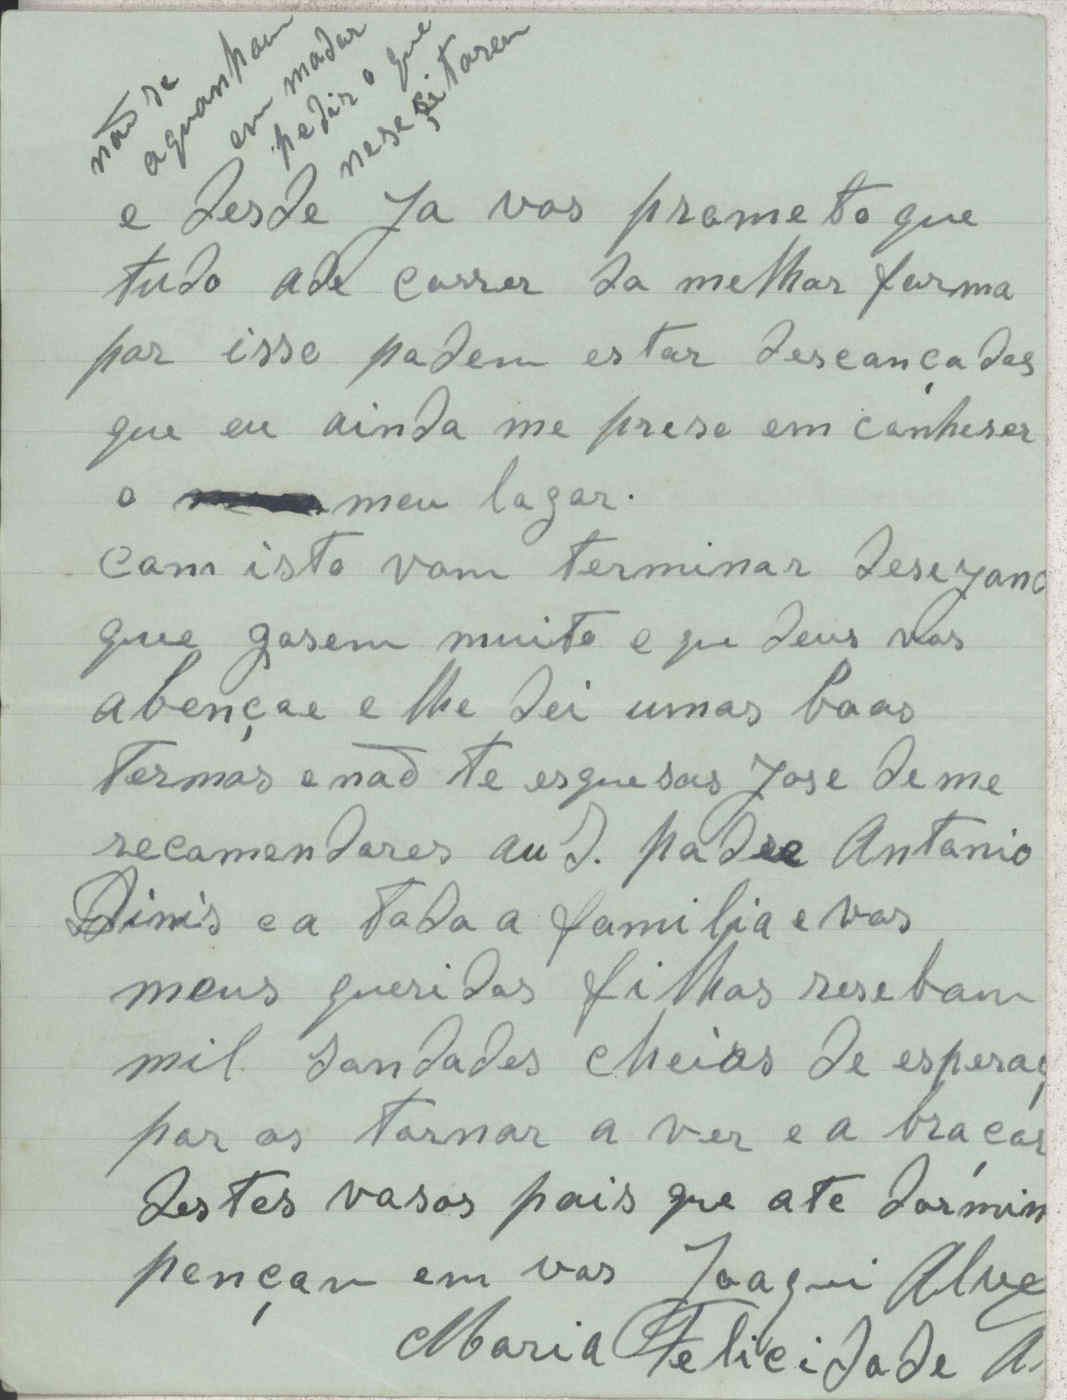 não se
aquanham
em madar
pedir o que
nesesitarem
e desde Ja vos prometo que
tudo ade correr da melhor forma
por isso podem estar descançados
que eu ainda me preso em conheser
o meu lagar.
Com isto vom terminar deseyand
que gosem muito e qu deus vos
abençoe e lhe dei umas boas
termas e não te esquesas Jose de me
recomendares au S. padre Antonio
Dinis e a toda a familia e vos
meus queridos filhos resebam
mil saudades cheias de esperaç
por os tornar a ver e a braçar
destes vosos pais que ate dormin
pençam em vos Joaqui Alve
Maria Felicidade A.